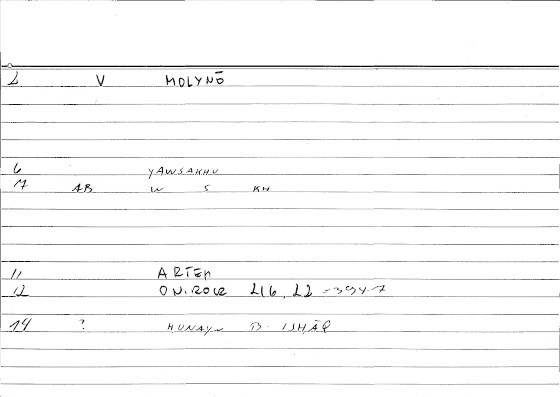 2 V MOLYNŌ
6 YAWSAKHU
7 AB W S KH
11 ARTEM
12 ONIROCR 216, 22 -394-7
14 ? HUNAYN B. ISHĀQ